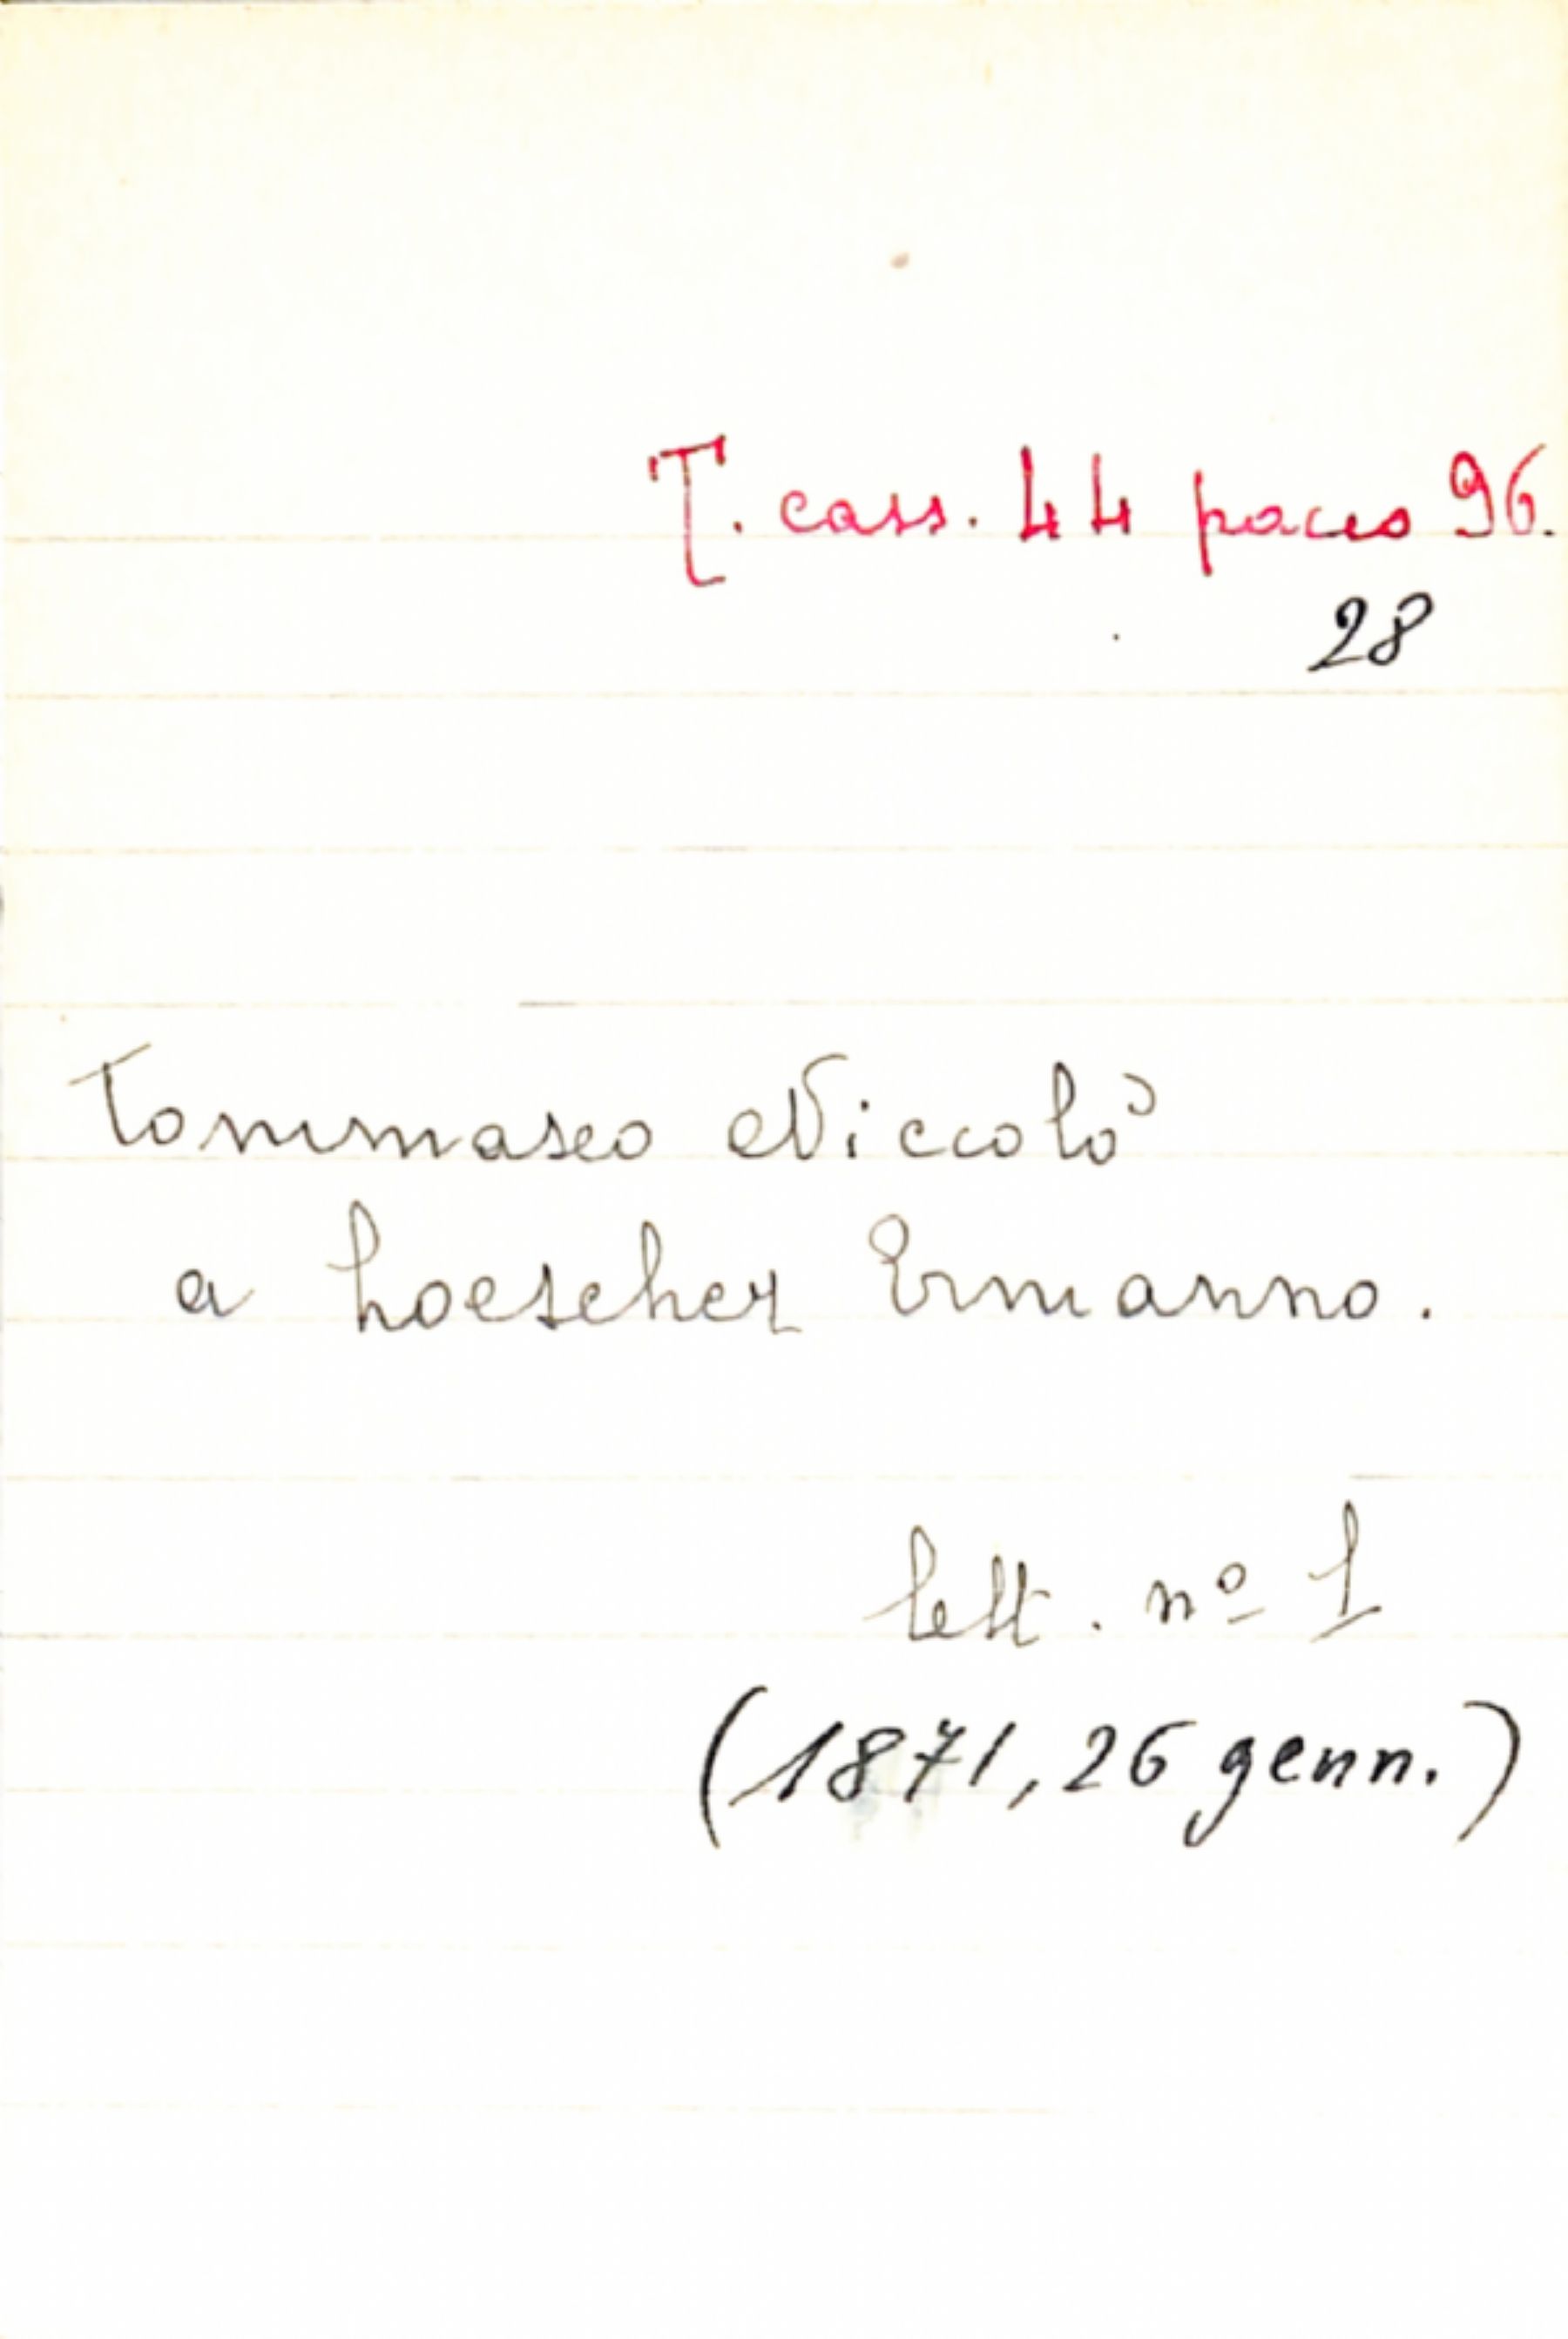 T. cass. 44 pacco 96.
28
Tommaseo Niccolò
a Loescher Ermanno.
lett. nº 1
(1871, 26 genn.)